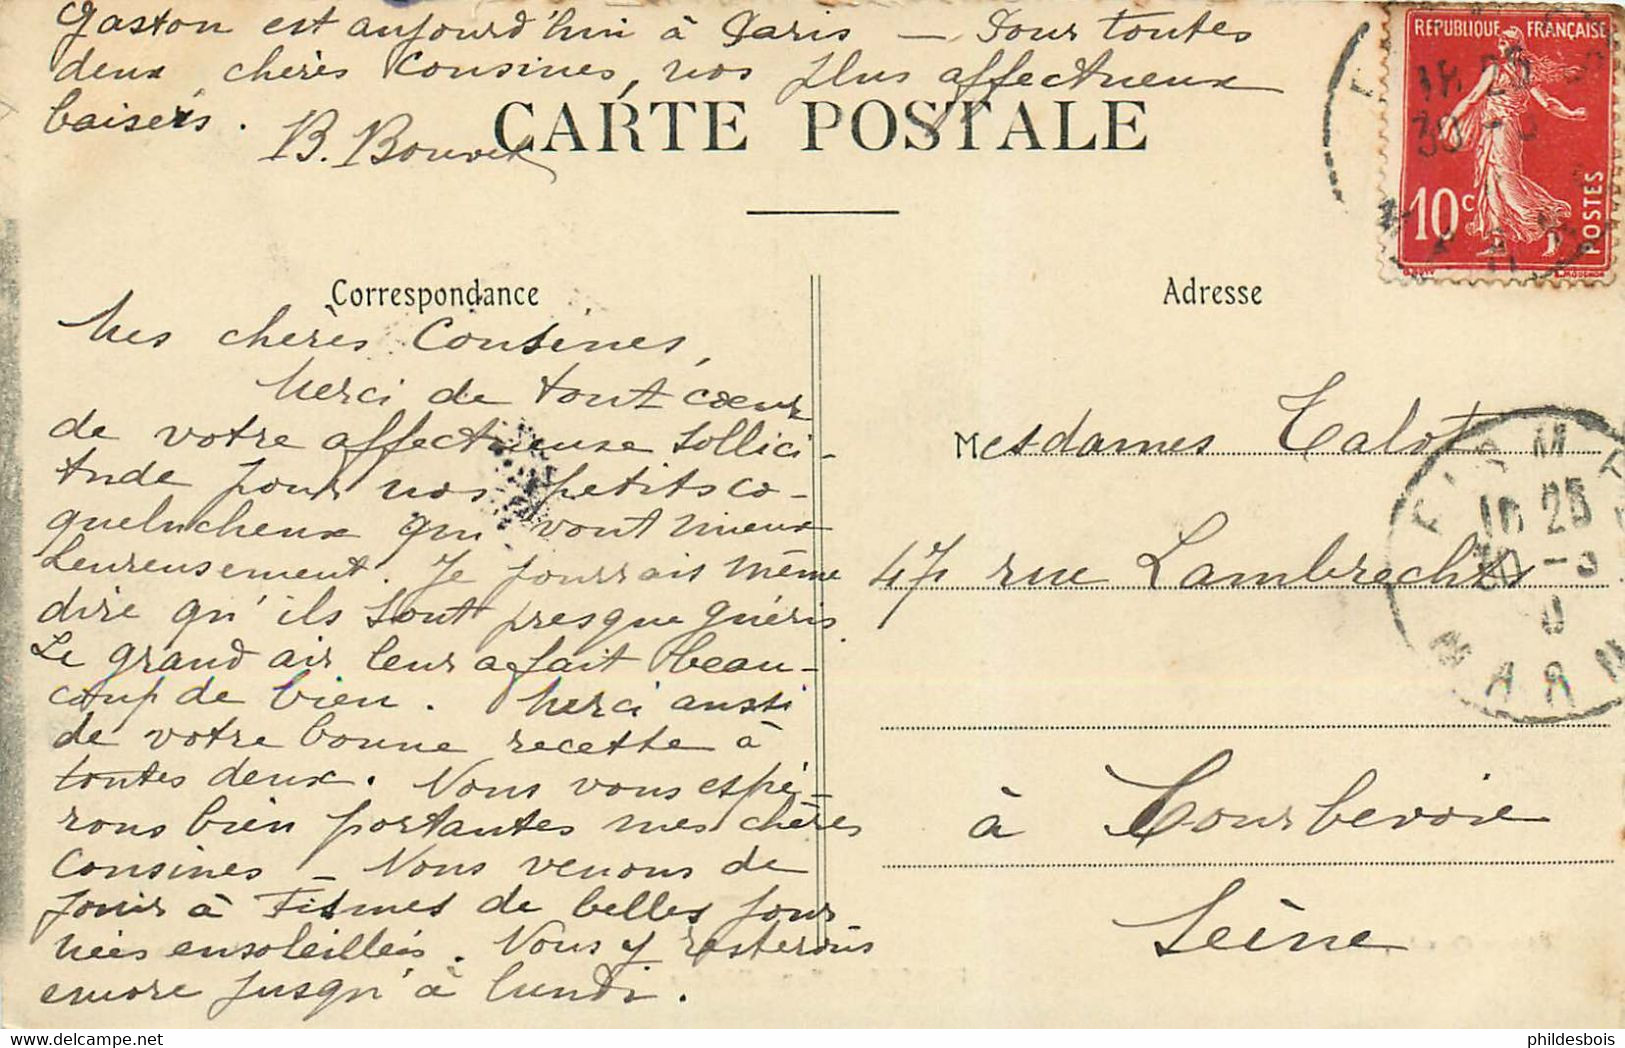 Gaston est aujourd'hui à Paris — Pour toutes
deux chères Cousines, nos plus affectueux
baisers.
B. Bouvet
CARTE POSTALE
REPUBLIQUE FRANÇAISE
10c
POSTES
Correspondance
Adresse
Mes chères Cousines,
Merci de tout cœur
de votre affectueuse sollici-
tude pour nos petits co-
quelucheux qui vont mieux
heureusement. Je pourrais même
dire qu'ils sont presque guéris.
Le grand air leur a fait beau-
coup de bien. Merci aussi
de votre bonne recette à
toutes deux. Nous vous espé-
rons bien portantes mes chères
Cousines — Nous venons de
jouir à Fismes de belles jour
nées ensoleillées. Nous y resterons
encore jusqu'à lundi.
Mesdames Talot
47 rue Lambrechts
à Courbevoie
Seine
FISMES
16 25
30 -3
MARNE
delcampe.net
phildesbois